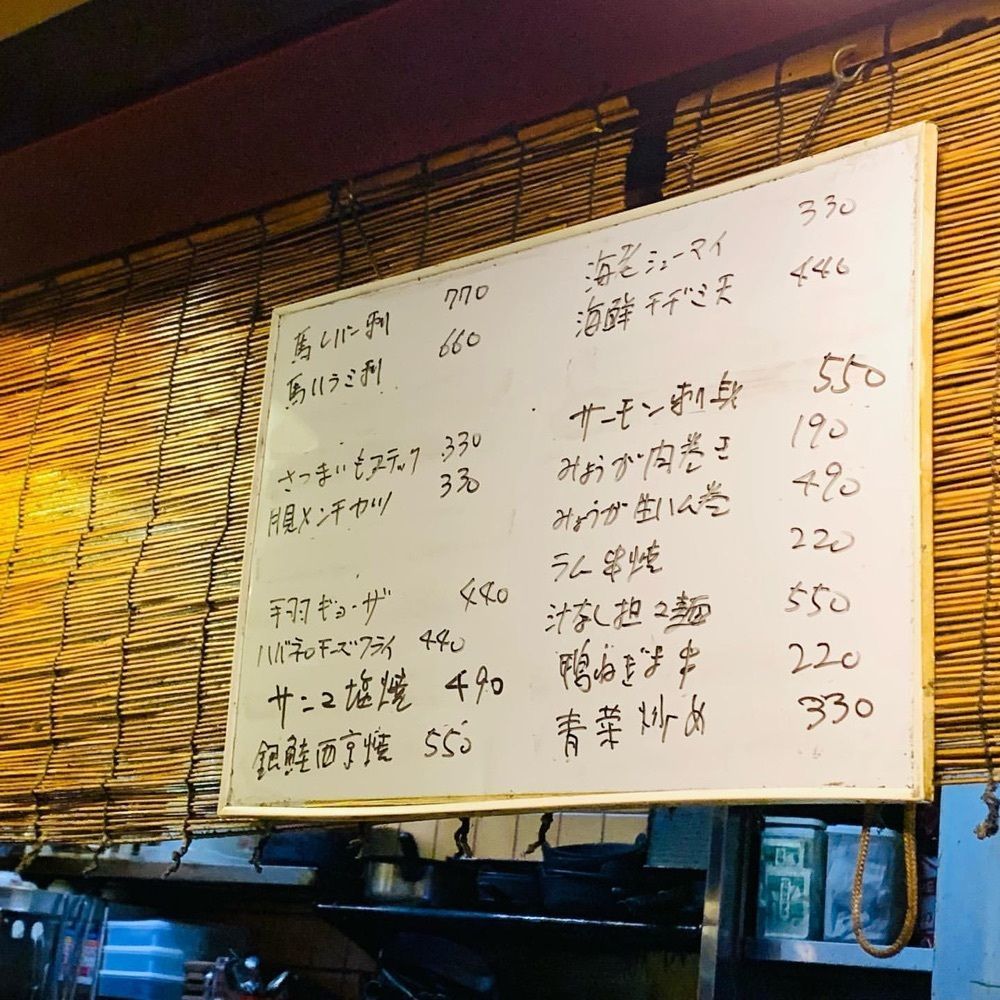 馬レバー刺 770
馬ハラミ刺 660
さつまいもスティック 330
月見メンチカツ 330
手羽ギョーザ 440
ハバネロチーズフライ 440
サンマ塩焼 490
銀鮭西京焼 550
海老シューマイ 330
海鮮チヂミ天 440
サーモン刺身 550
みょうが肉巻き 190
みょうが生ハム巻 490
ラム串焼 220
汁なし担々麺 550
鴨ねぎま串 220
青菜炒め 330